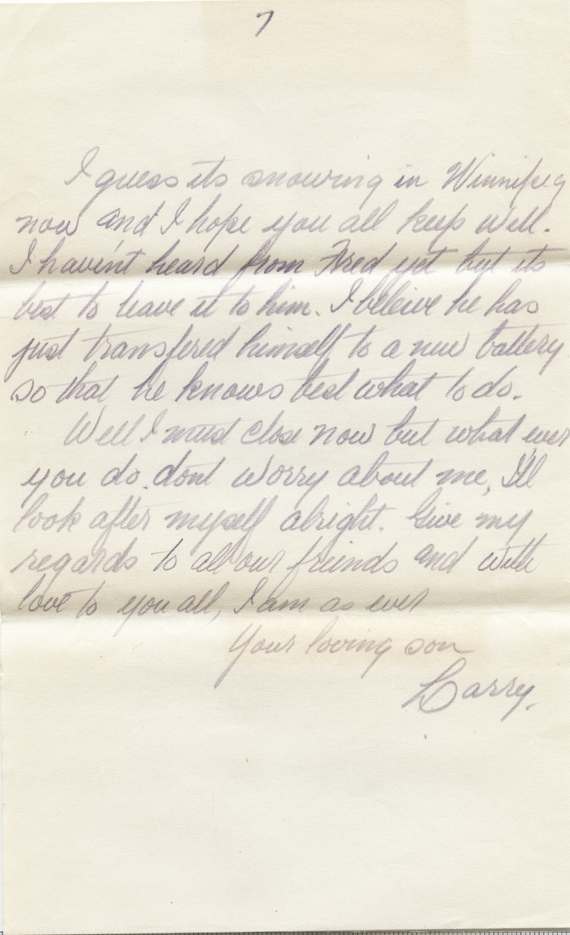 7
I guess its snowing in Winnipeg
now and I hope you all keep well.
I havent heard from Fred yet but its
best to leave it to him. I beleive he has
just transfered himself to a new battery
so that he knows best what to do.
Well I must close now but what ever
you do. dont worry about me, I'll
look after myself alright. Give my
regards to all our friends and with
love to you all, I am as ever
Your loving son
Larry.